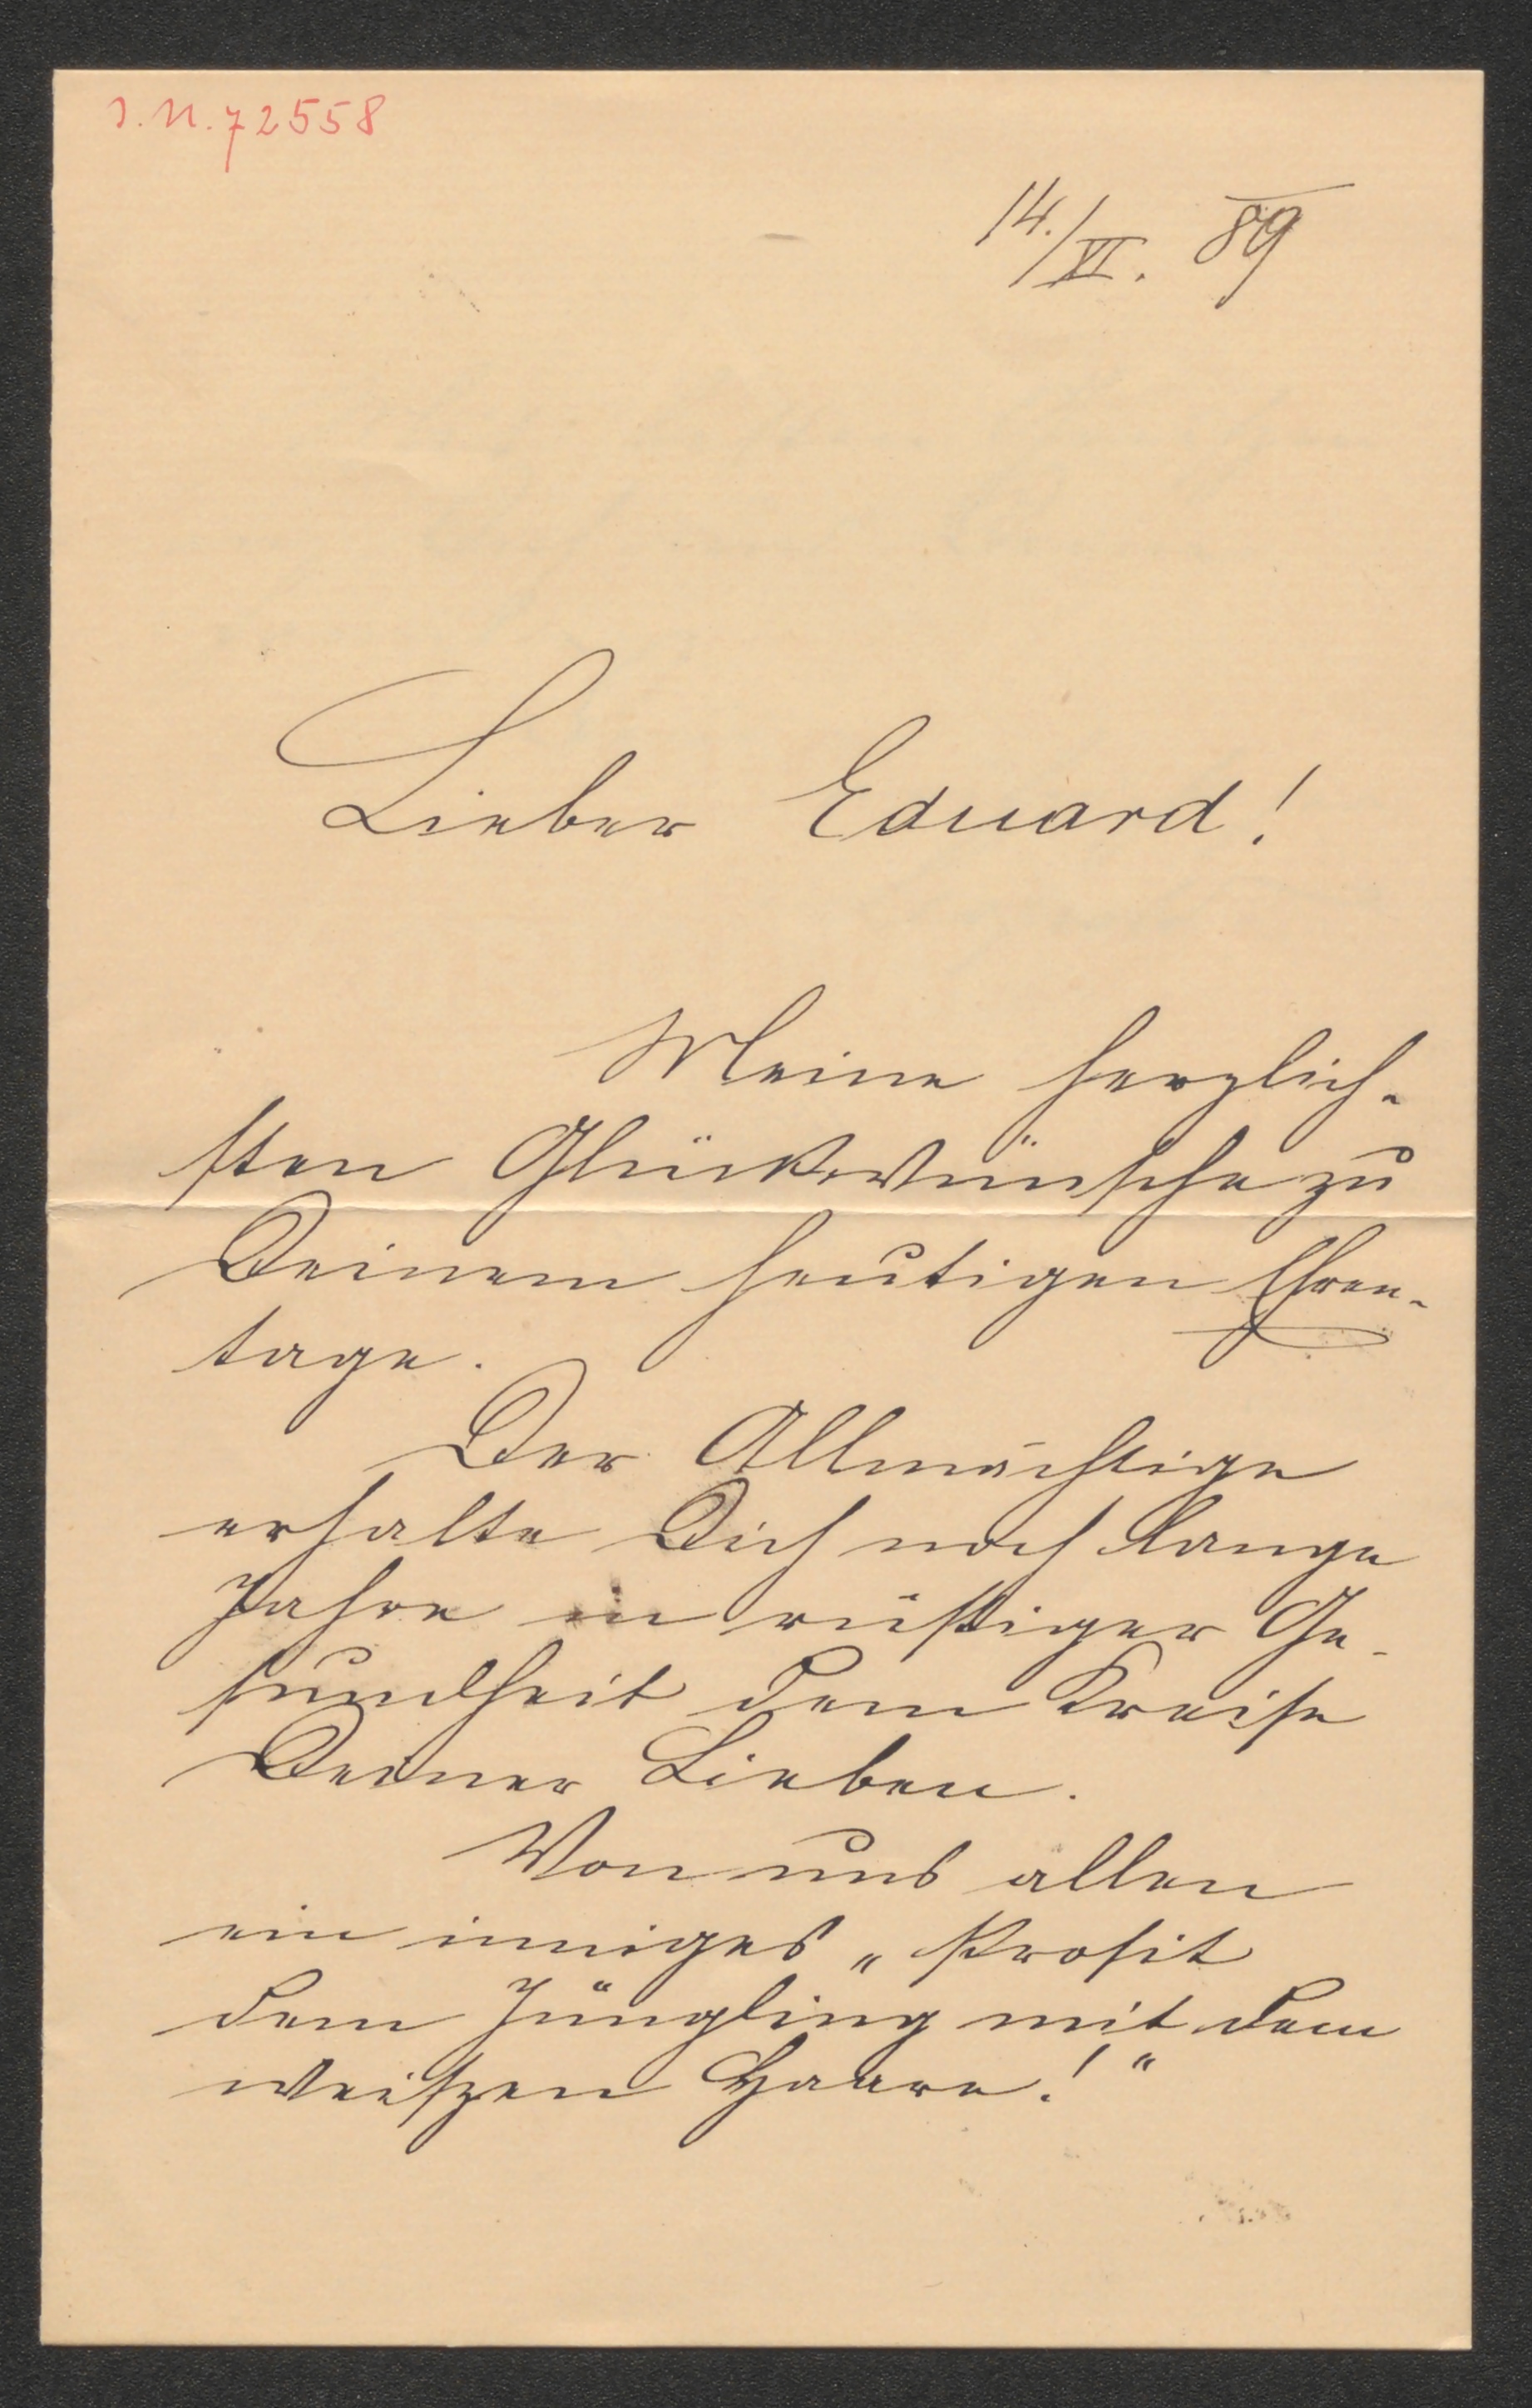 J.N. 72558
14./VI. 89
Lieber Eduard!
Meine herzlich-
sten Glückwünsche zu
Deinem heutigen Ehren-
tage.
Der Allmächtige
erhalte Dich noch lange
Jahre in rüstiger Ge-
sundheit dem Kreise
Deiner Lieben.
Von uns allen
ein inniges „Prosit
dem Jüngling mit dem
weißen Haare!“